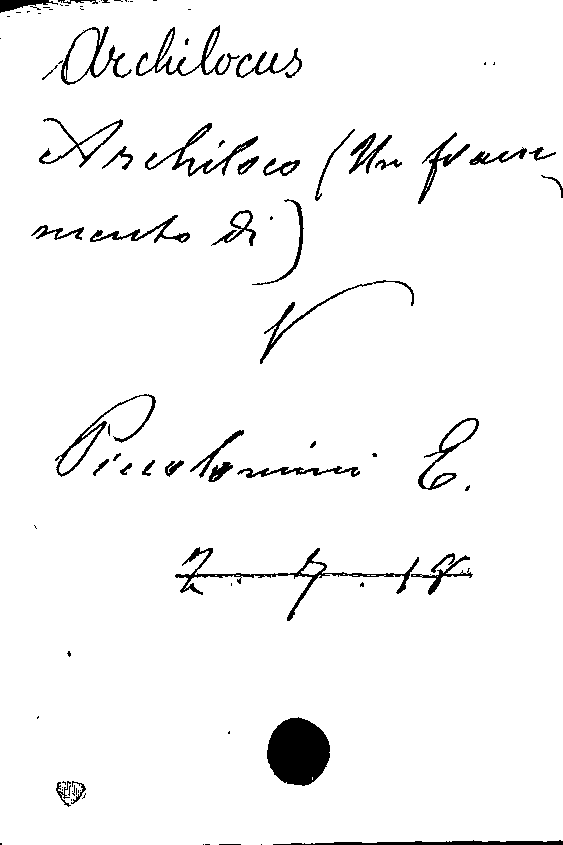 Archilocus
Archiloco (Un fram-
mento di)
V
Piccolomini E.
2.7.18